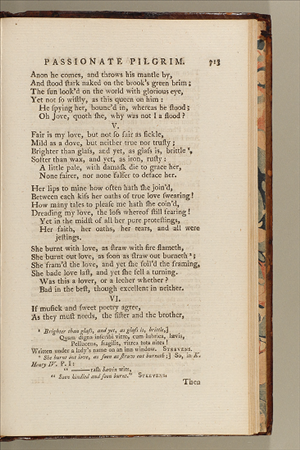 PASSIONATE PILGRIM. 713
Anon he comes, and throws his mantle by,
And ſtood ſtark naked on the brook's green brim;
The ſun look'd on the world with glorious eye,
Yet not ſo wiſtly, as this queen on him:
He ſpying her, bounc'd in, whereas he ſtood;
Oh Jove, quoth ſhe, why was not I a flood?
V.
Fair is my love, but not ſo fair as fickle,
Mild as a dove, but neither true nor truſty;
Brighter than glaſs, and yet, as glaſs is, brittle ⁸,
Softer than wax, and yet, as iron, ruſty:
A little pale, with damaſk die to grace her,
None fairer, nor none falſer to deface her.
Her lips to mine how often hath ſhe join'd,
Between each kiſs her oaths of true love ſwearing!
How many tales to pleaſe me hath ſhe coin'd,
Dreading my love, the loſs whereof ſtill fearing!
Yet in the midſt of all her pure proteſtings,
Her faith, her oaths, her tears, and all were
jeſtings.
She burnt with love, as ſtraw with fire flameth,
She burnt out love, as ſoon as ſtraw out burneth ⁹;
She fram'd the love, and yet ſhe foil'd the framing,
She bade love laſt, and yet ſhe fell a turning.
Was this a lover, or a lecher whether?
Bad in the beſt, though excellent in neither.
VI.
If muſick and ſweet poetry agree,
As they muſt needs, the ſiſter and the brother,
⁸ Brighter than glaſs, and yet, as glaſs is, brittle,]
Quam digna inſcribi vitro, cum lubrica, lævis,
Pellucens, fragilis, vitrea tota nites!
Written under a lady's name on an inn window. STEEVENS.
⁹ She burnt out love, as ſoon as ſtraw out burneth;] So, in K.
Henry IV. P. I:
" ——— raſh bavin wits,
" Soon kindled and ſoon burnt." STEEVENS.
Then